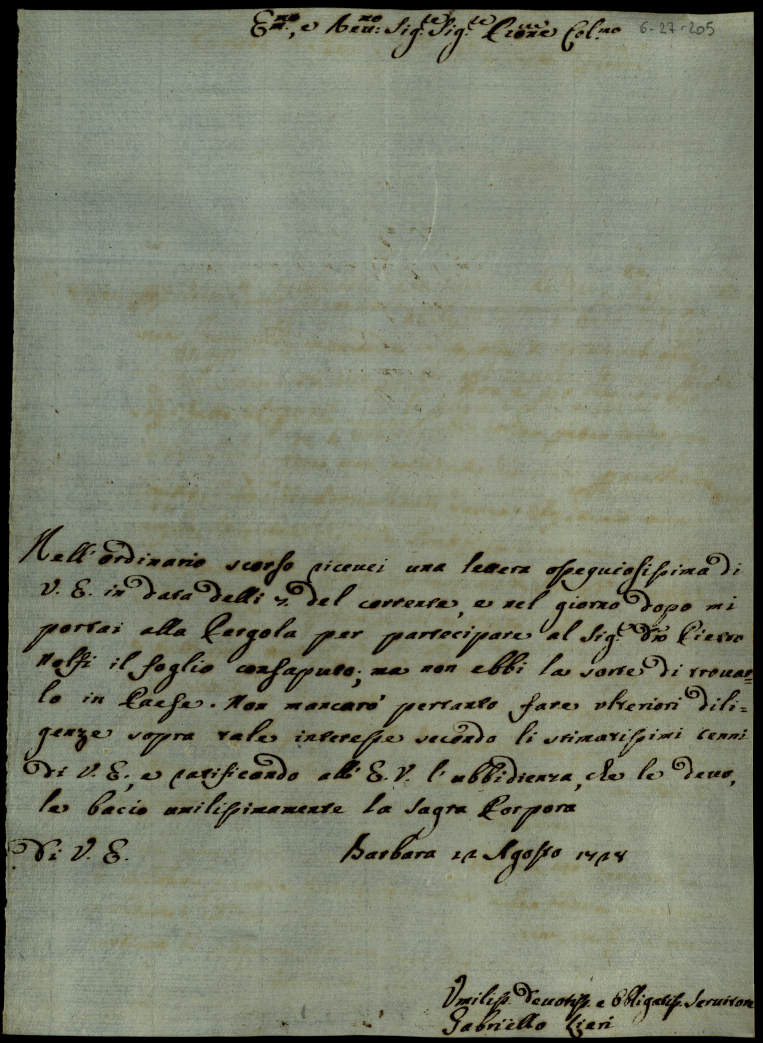 Em.no, e Reu.mo Sig.re Sig.re P.rone Col.mo 6-27-205
Nell'ordinario scorso riceuei una lettera ossequiosissima di
V. E. in data delli 7. del corrente, e nel giorno dopo mi
portai alla Pergola per partecipare al Sig.re D.n Pietro
il foglio consaputo; ma non ebbi la sorte di trouar=
lo in Paese. Non mancarò pertanto fare vlteriori dili=
genze sopra tale interesse secondo li stimatissimi cenni
di V. E., e ratificando all'E. V. l'ubbidienza, che le deuo,
le bacio umilissimamente la Sagra Porpora
Di V. E. Barbara Agosto
Vmiliss. Deuotiss. e Obligatiss. Seruitore
Gabriello